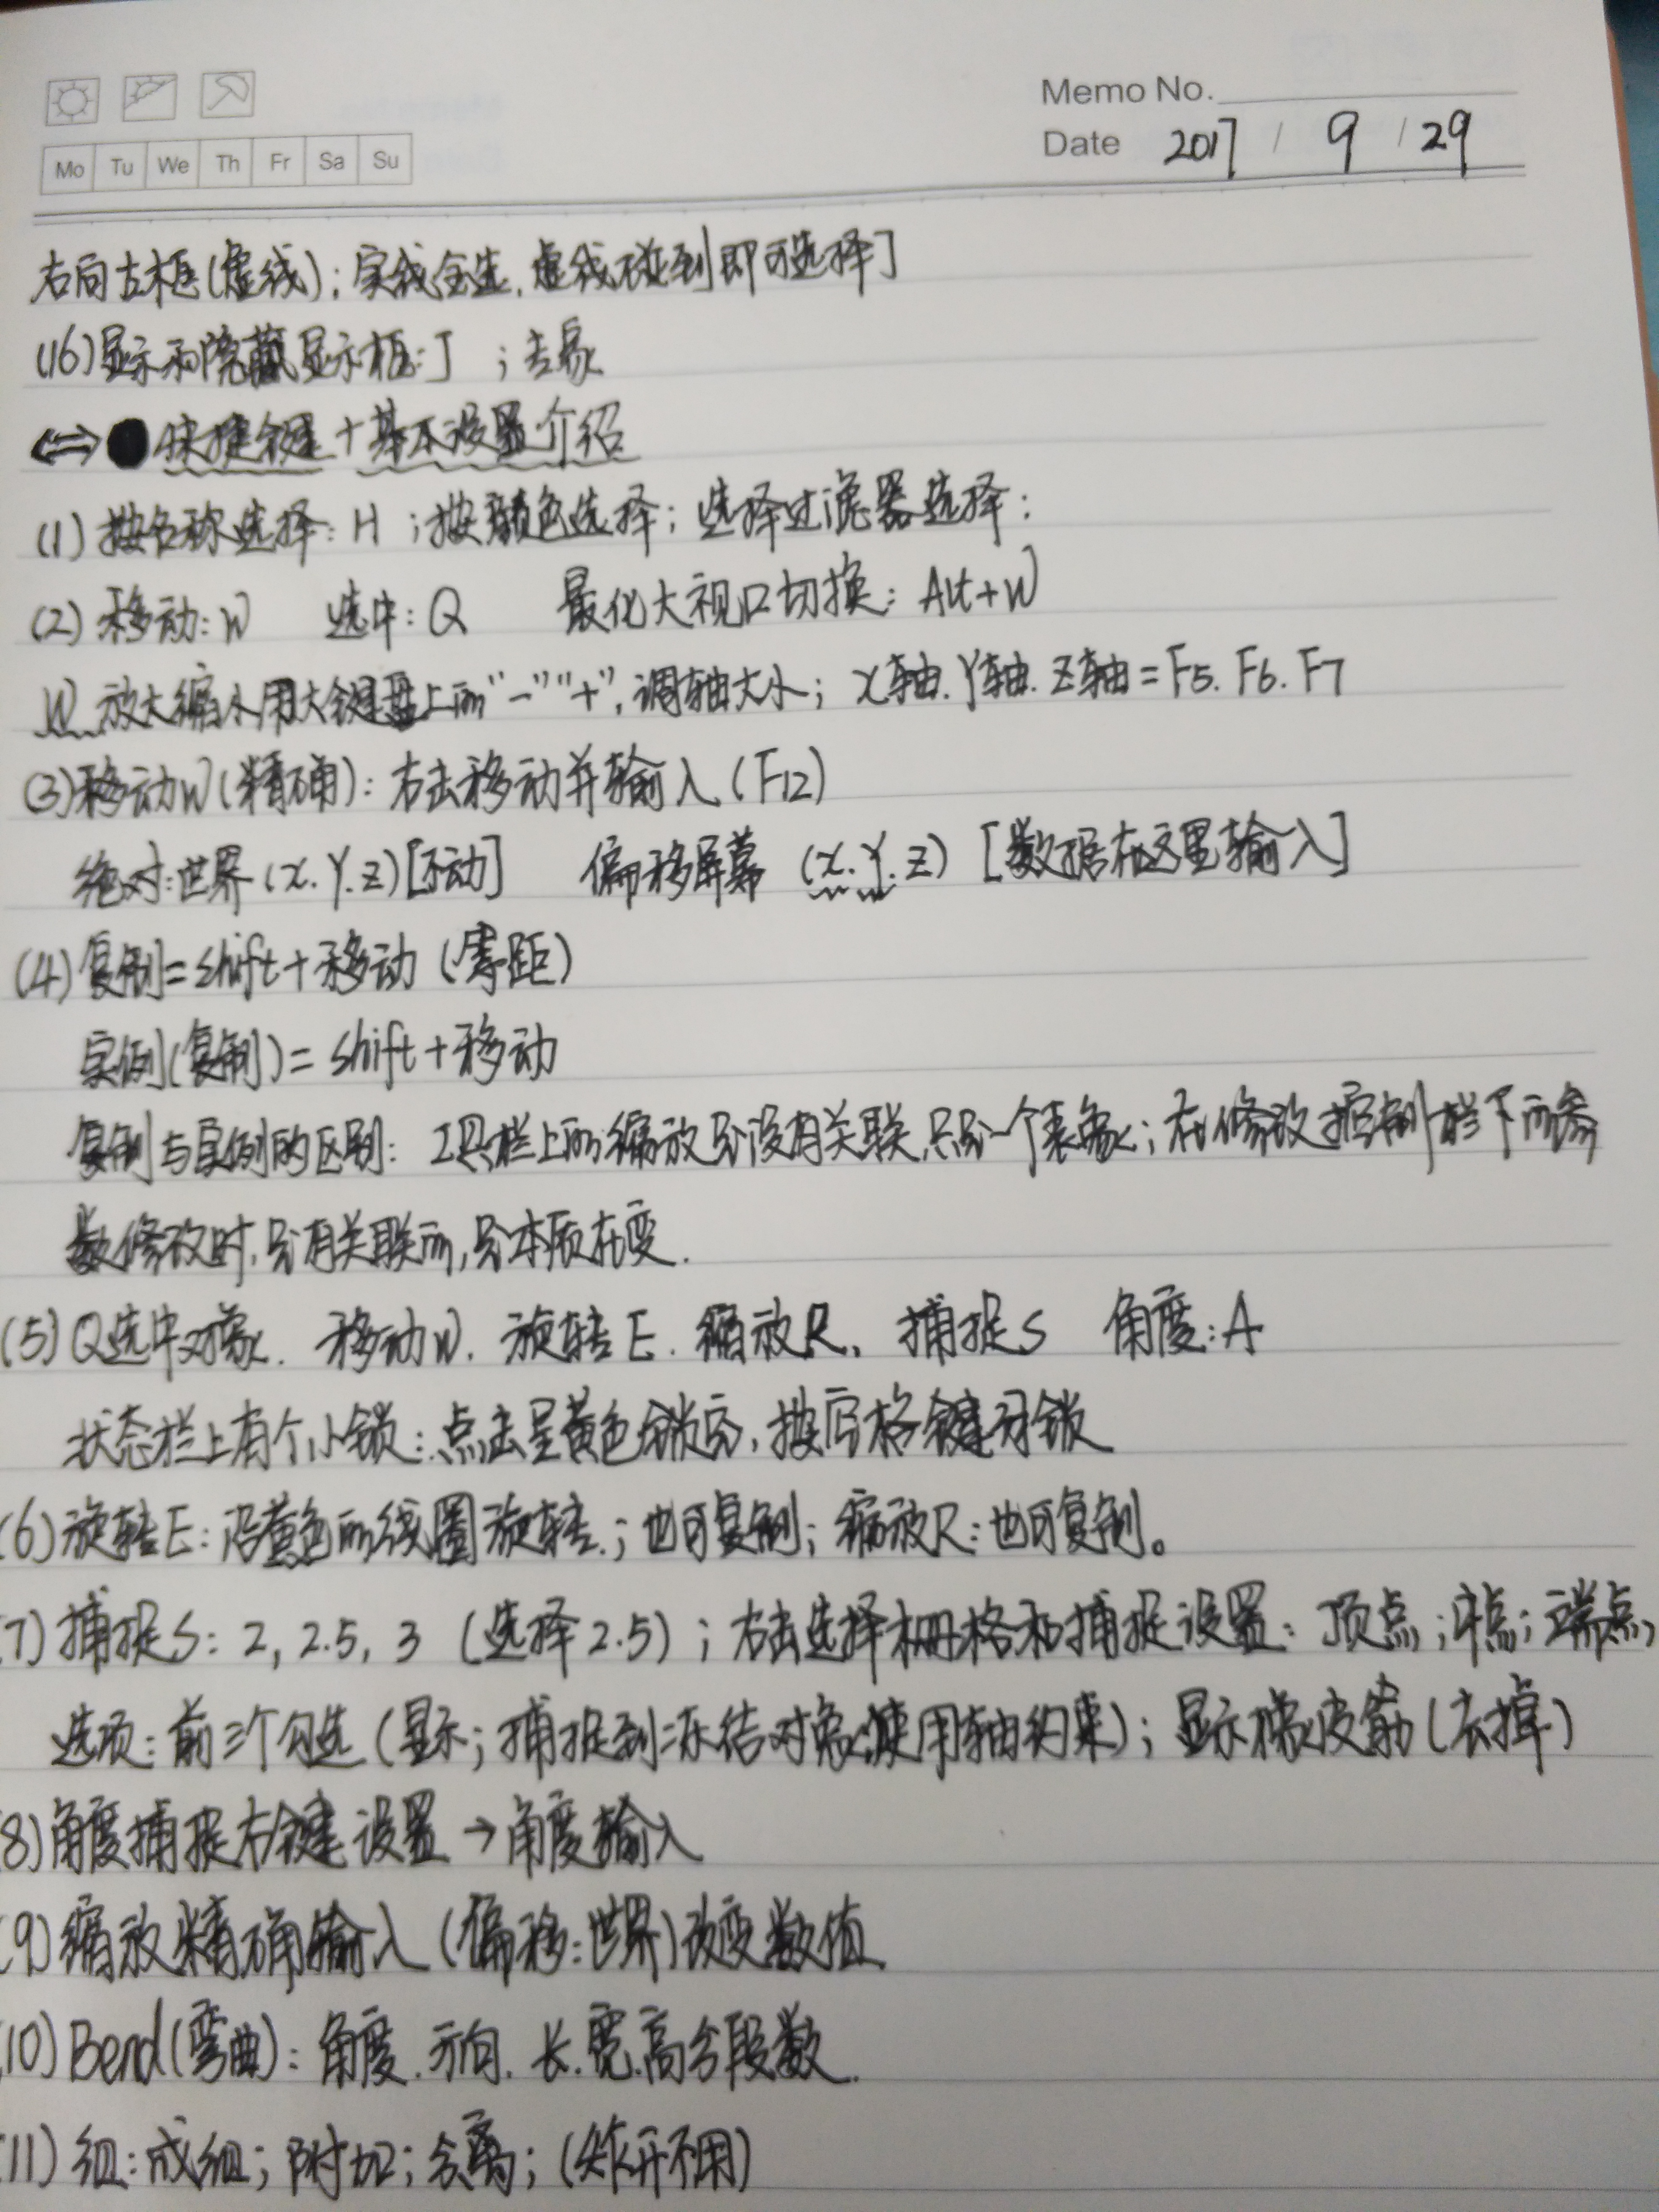 Memo No.
Date 2017 / 9 / 29
Mo Tu We Th Fr Sa Su
右向左框(虚线);实线全选,虚线碰到即可选择]
(16)显示和隐藏显示框:J ;去象
快捷键+基本设置介绍
(1)按名称选择:H ;按颜色选择;选择过滤器选择:
(2)移动:W 选中:Q 最化大视口切换:Alt+W
W 放大缩小用大键盘上的"-""+",调轴大小;X轴.Y轴.Z轴=F5.F6.F7
(3)移动W(精确):右击移动并输入(F12)
绝对:世界(x.Y.z)[不动] 偏移屏幕(x.Y.z)[数据在这里输入]
(4)复制=shift+移动(等距)
实例(复制)=shift+移动
复制与实例的区别:工具栏上的缩放是没有关联,只是一个表象;在修改控制栏下的参
数修改时,是有关联的,是本质在变.
(5)Q选中对象.移动W.旋转E.缩放R.捕捉S 角度:A
状态栏上有个小锁:点击呈黄色锁定,按空格键开锁
(6)旋转E:沿黄色的线圈旋转.;也可复制;缩放R:也可复制。
(7)捕捉S:2,2.5,3(选择2.5);右击选择栅格和捕捉设置:顶点;中点;端点,
选项:前三个勾选(显示;捕捉到冻结对象;使用轴约束);显示橡皮筋(去掉)
(8)角度捕捉右键设置→角度输入
(9)缩放精确输入(偏移:世界)改变数值
(10)Bend(弯曲):角度.方向.长.宽.高分段数.
(11)组:成组;附加;分离;(炸开不用)